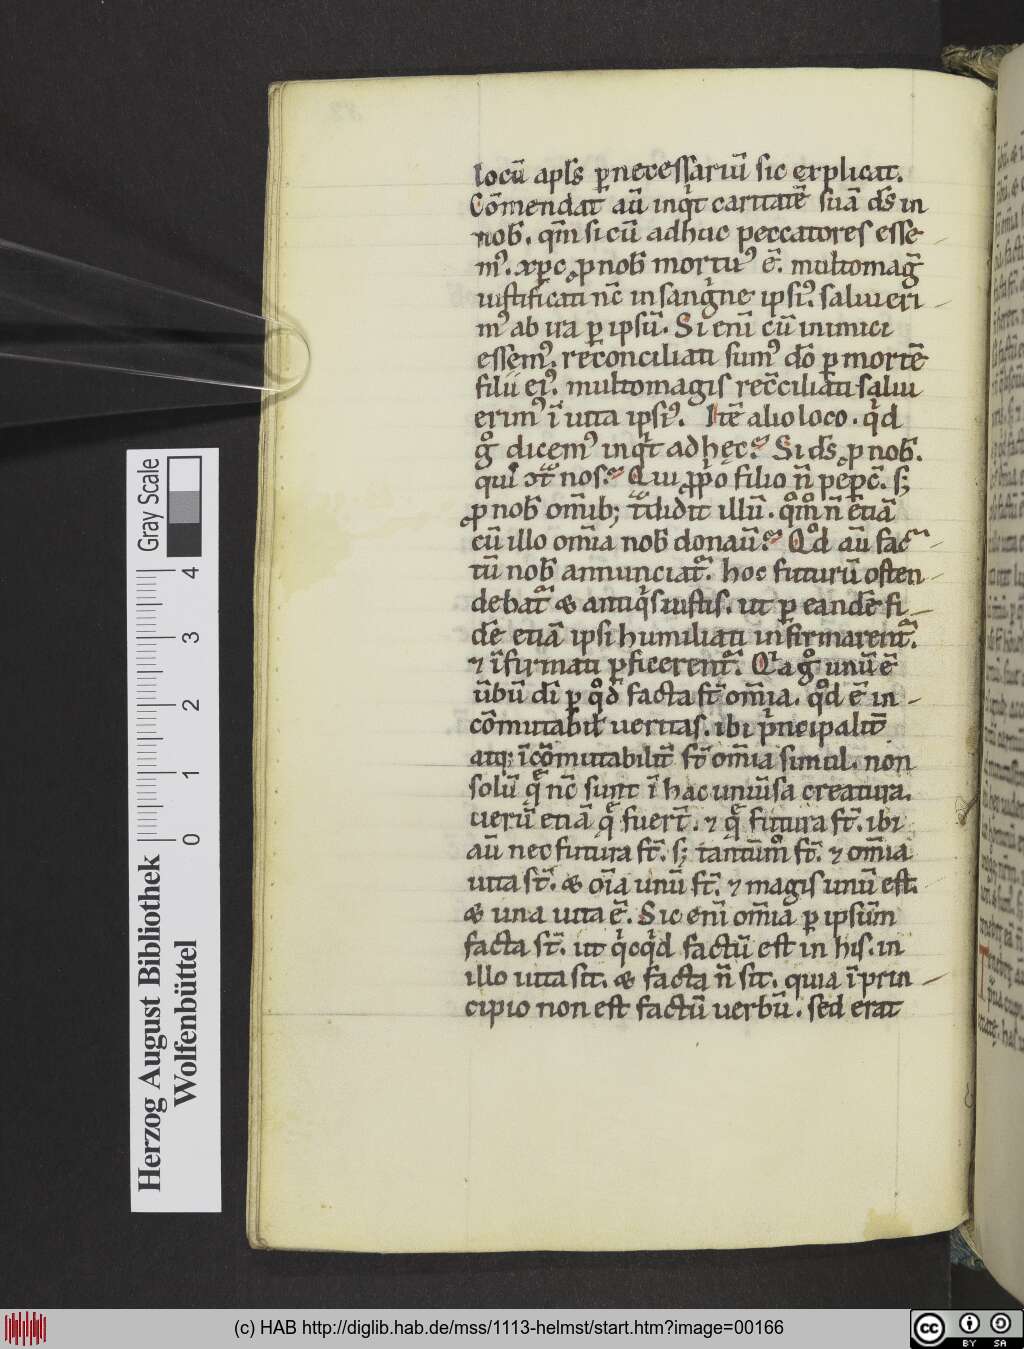 locū apłs ꝑnecessariū sic explicat.
Cōmendat aū inqͥt caritatē suā dſ in
nob̄. qm̄ si cū adhuc peccatores esse
mꝰ. xp̄c ꝓ nob̄ mortuꝰ ē. multomag̃
iustificati nc̄ in sangͥne ipsiꝰ. salui eri
mꝰ ab ira ꝑ ipsū. Si enī cū inimici
essemꝰ. reconciliati sumꝰ dō ꝑ mortē
filii eiꝰ. multomagis rec̄ciliati salui
erimꝰ ī uita ipsiꝰ. Itē alio loco. qͥd
gͦ dicemꝰ inqͥt ad hęc? Si dſ ꝓ nob̄.
quͥ ꝯt̃ nos? Qui ꝓpͥo filio n̄ peꝑc̄. s;
ꝓ nob̄ omīb; t̃didit illū. qͦm̊ n̄ etiā
cū illo om̄ia nob̄ donaū? Qͦd aū fac
tū nob̄ annunciat̃. hoc futurū osten
debat̃ & antiqͥs iustis. ut ꝑ eandē fi
dē etiā ipsi humiliati infirmarent̃.
⁊ īfirmati ꝑficerent̃. Qͥa gͦ unū ē
ūbū dī ꝑ qͦd̄ facta st̄ om̄ia. qͦd ē in
cōmutabił ueritas. ibi pͥncipalit̄
atq; īcōmutabilit̄ st̄ om̄ia simul. non
solū q̄ nc̄ sunt ī hac uniūsa creatura.
uerū etiā q̄ fuert̄. ⁊ q̄ futura st̄. ibi
aū nec futura st̄. s; tantūmͦ st̄. ⁊ om̄ia
uita st̄. & oīa unū st̄. ⁊ magis unū est.
& una uita ē. Sic enī om̄ia ꝑ ipsūm
facta st̄. ut qͥcqͥd factū est in his. in
illo uita sit. & facta n̄ sit. quia ī prin
cipio non est factū uerbū. sed erat
Gray Scale
4
3
2
1
0
Herzog August Bibliothek
Wolfenbüttel
(c) HAB http://diglib.hab.de/mss/1113-helmst/start.htm?image=00166
cc
BY SA